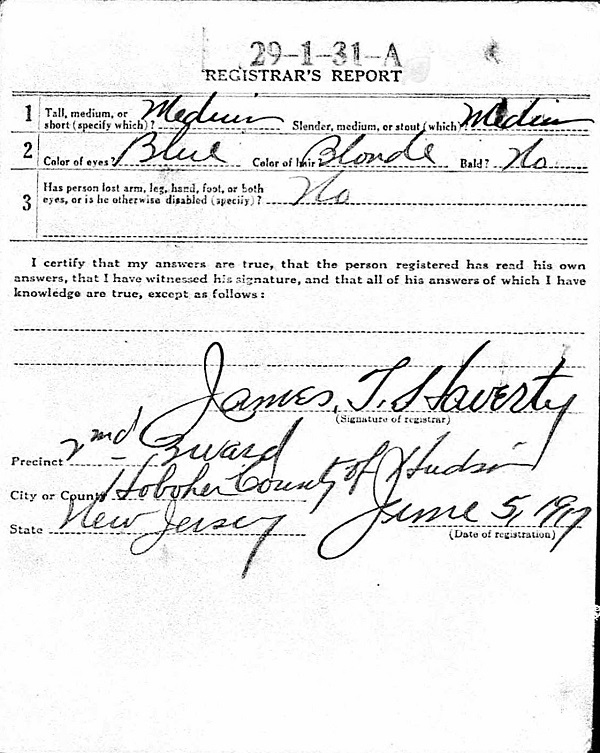 29-1-31-A
REGISTRAR'S REPORT
1 Tall, medium, or short (specify which)? Medium Slender, medium, or stout (which)? Medium
2 Color of eyes? Blue Color of hair? Blonde Bald? No
3 Has person lost arm, leg, hand, foot, or both eyes, or is he otherwise disabled (specify)? No
I certify that my answers are true, that the person registered has read his own
answers, that I have witnessed his signature, and that all of his answers of which I have
knowledge are true, except as follows:
James. T. Haverty
(Signature of registrar)
Precinct 2nd ward
City or County Hoboken County of Hudson
State New Jersey June 5, 1917
(Date of registration)